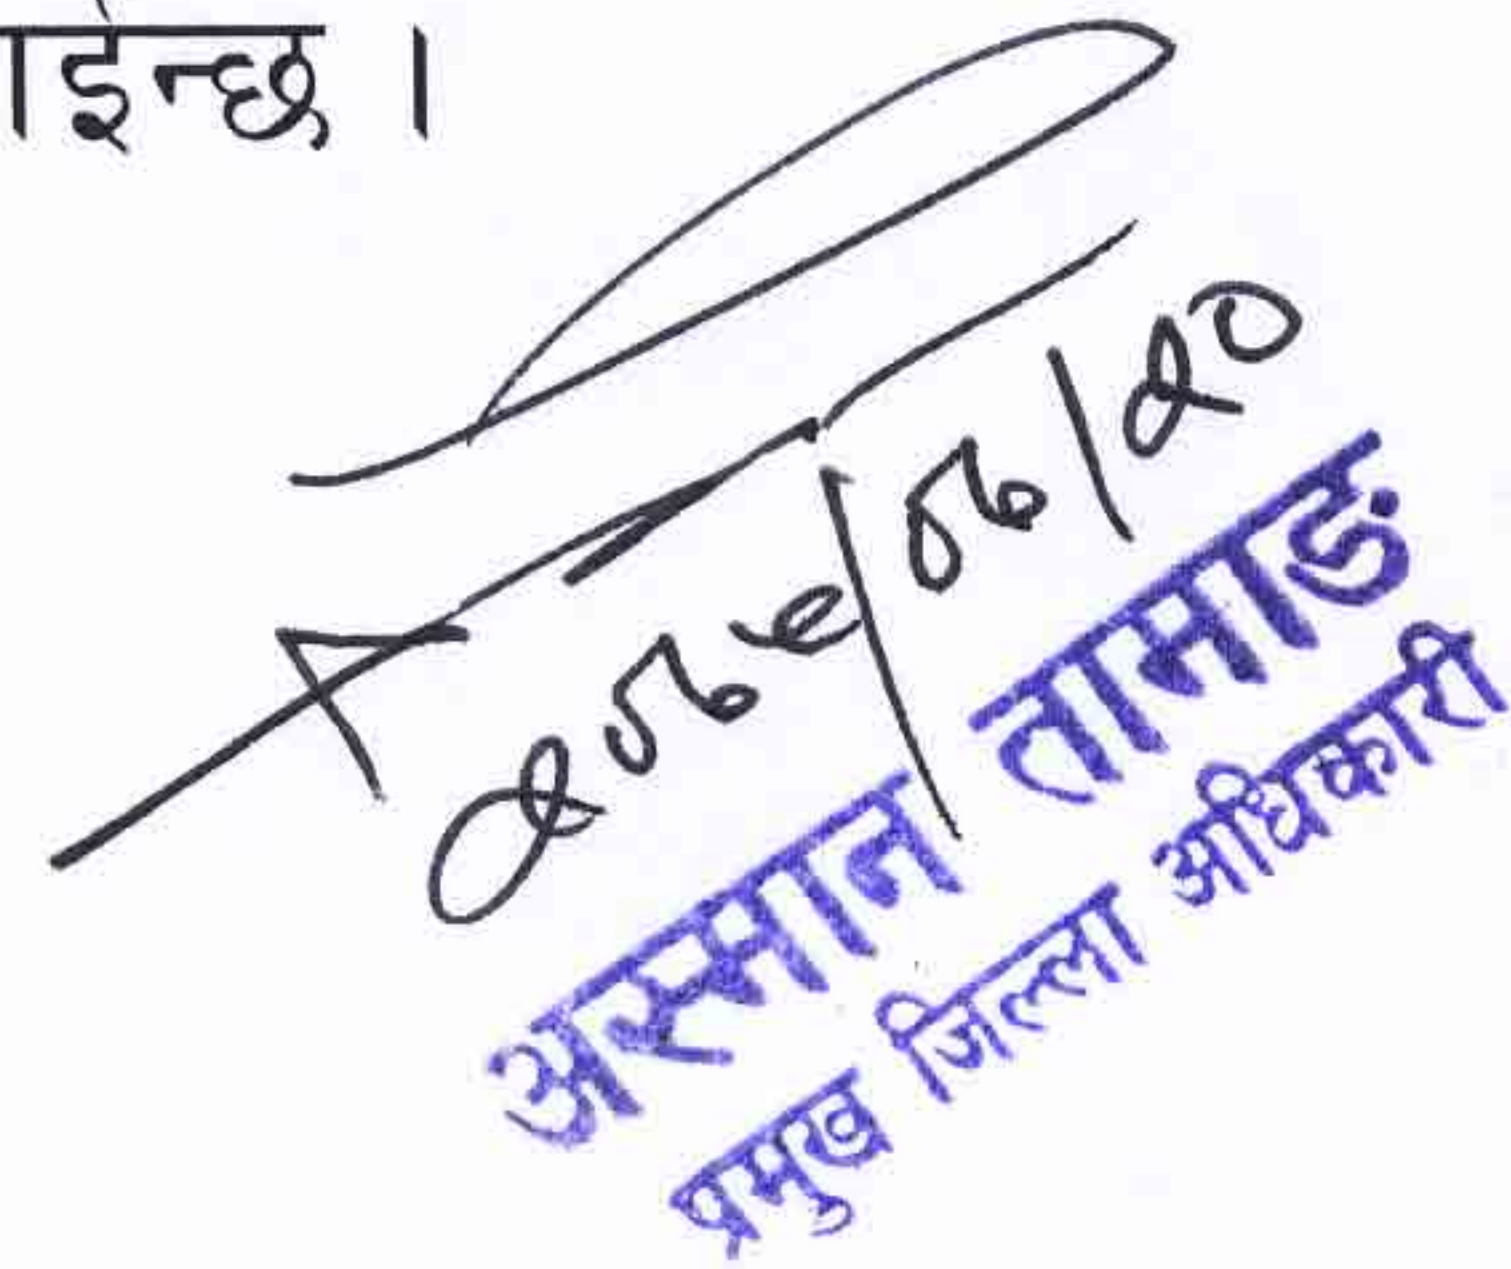 ाईन्छ ।
२०७९/०७/२०
अस्मान तामाङ
प्रमुख जिल्ला अधिकारी